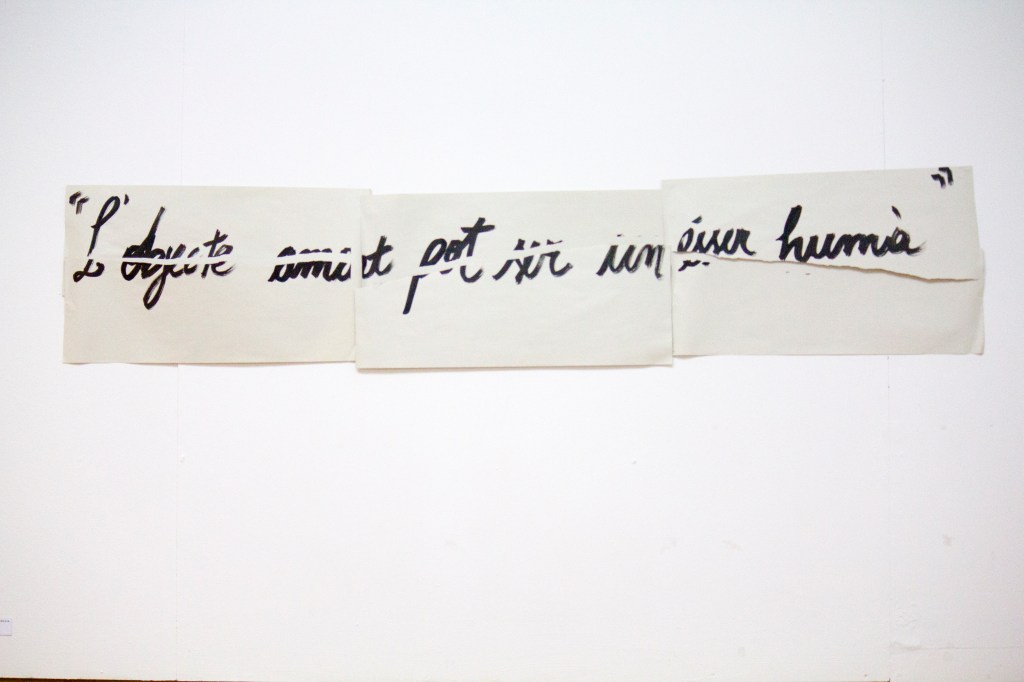 "L'objecte amat pot ser un ésser humà"